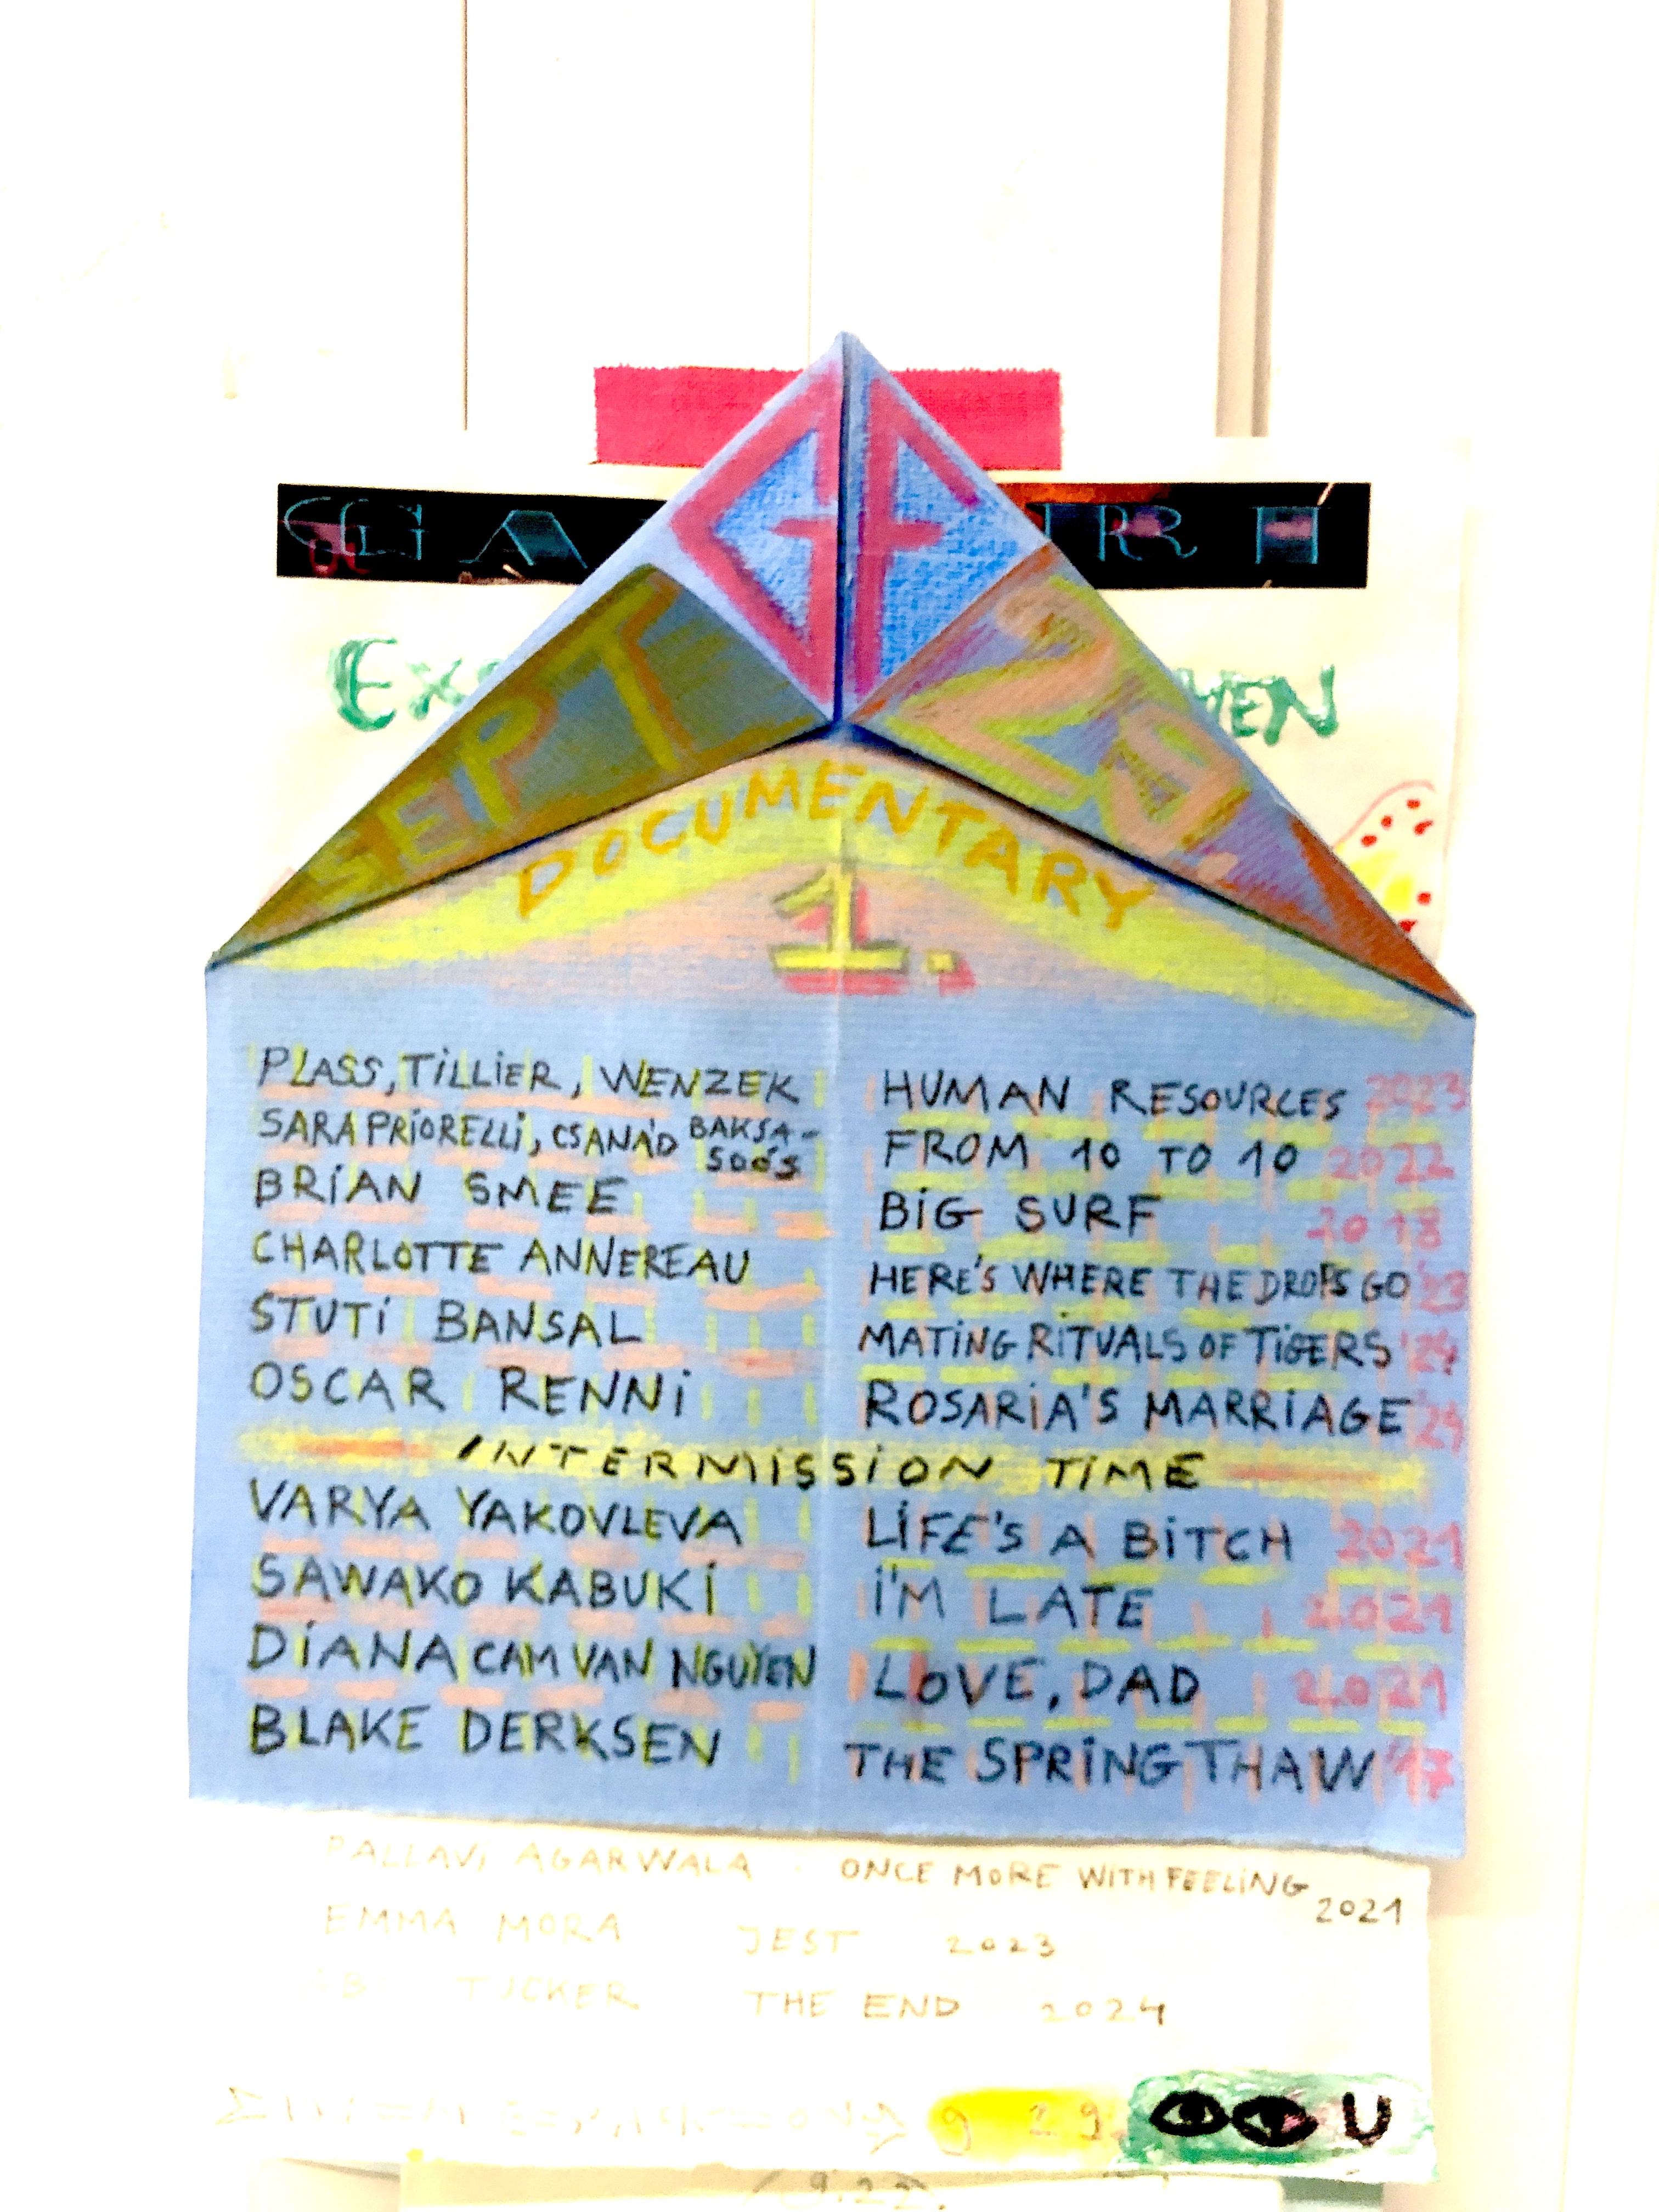 GF
SEPT 29.
DOCUMENTARY
1.
PLASS, TILLIER, WENZEK HUMAN RESOURCES 2023
SARA PRIORELLI, CSANÁD BAKSA-SOÓS FROM 10 TO 10 2022
BRIAN SMEE BIG SURF 2018
CHARLOTTE ANNEREAU HERE'S WHERE THE DROPS GO '23
STUTI BANSAL MATING RITUALS OF TIGERS '24
OSCAR RENNI ROSARIA'S MARRIAGE '24
INTERMISSION TIME
VARYA YAKOVLEVA LIFE'S A BITCH 2021
SAWAKO KABUKI I'M LATE 2021
DIANA CAM VAN NGUYEN LOVE, DAD 2021
BLAKE DERKSEN THE SPRING THAW '17
PALLAVI AGARWALA - ONCE MORE WITH FEELING 2021
EMMA MORA JEST 2023
TUCKER THE END 2024
9 29. U